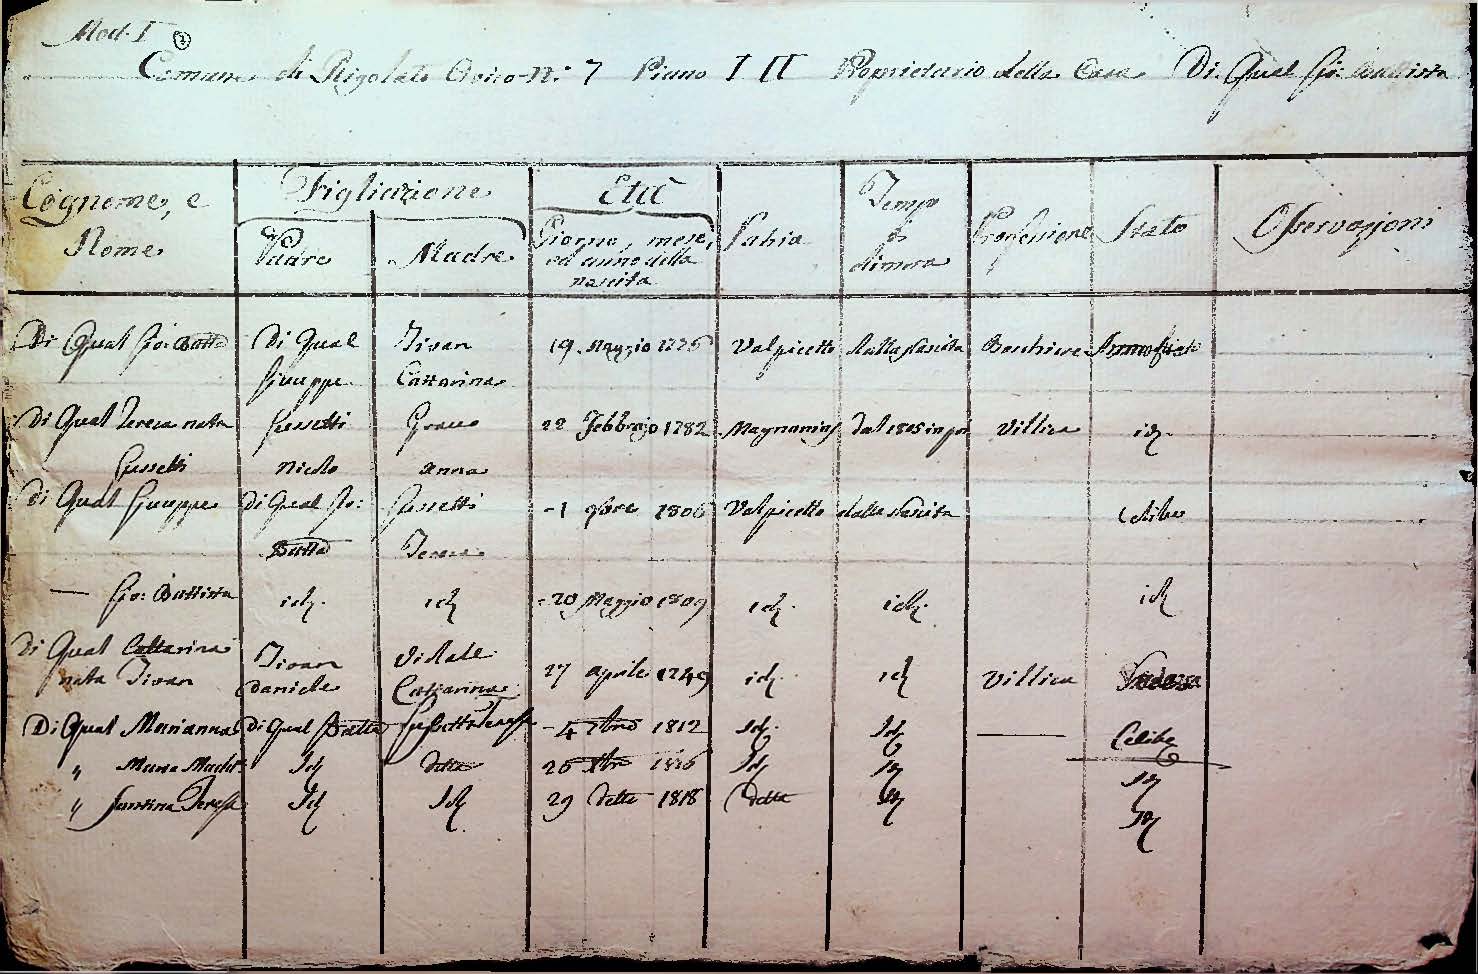 Mod. I
Comune di Rigolato Civico N: 7 Piano I II Proprietario della Casa Di Qual Gio: Battista
Cognome, e Nome
Figliazione
Padre
Madre
Età
Giorno, mese, ed anno della nascita
Patria
Tempo di dimora
Professione
Stato
Osservazioni
Di Qual Gio: Batta Di Qual Tivan 19 Maggio 1776 Valpicetto dalla Nascita
Giuseppe Cattarina
Di Qual Teresa nata Gussetti Gracco 22 Febbrajo 1782 Magnanins dal 1805 in poi Villica id.
Gussetti Nicolo Anna
Di Qual Giuseppe Di Qual Gio: Gussetti -1 9bre 1806 Valpicetto dalla Nascita Celibe
Batta Teresa
— Gio: Battista id. id. -20 Maggio 1809 id. id. id.
Di Qual Cattarina Tivan Vidale 27 aprile 1749 id. id. Villica Vedova
nata Tivan Daniele Cattarina
Di Qual Marianna Di Qual G Batta Gussetti Teresa -4 1812 Id. Id. — Celibe
" Maria Madda Id. detta 26 1816 Id. Id. Id.
" Santina Teresa Id. Id. 29 detto 1818 detta Id. Id.